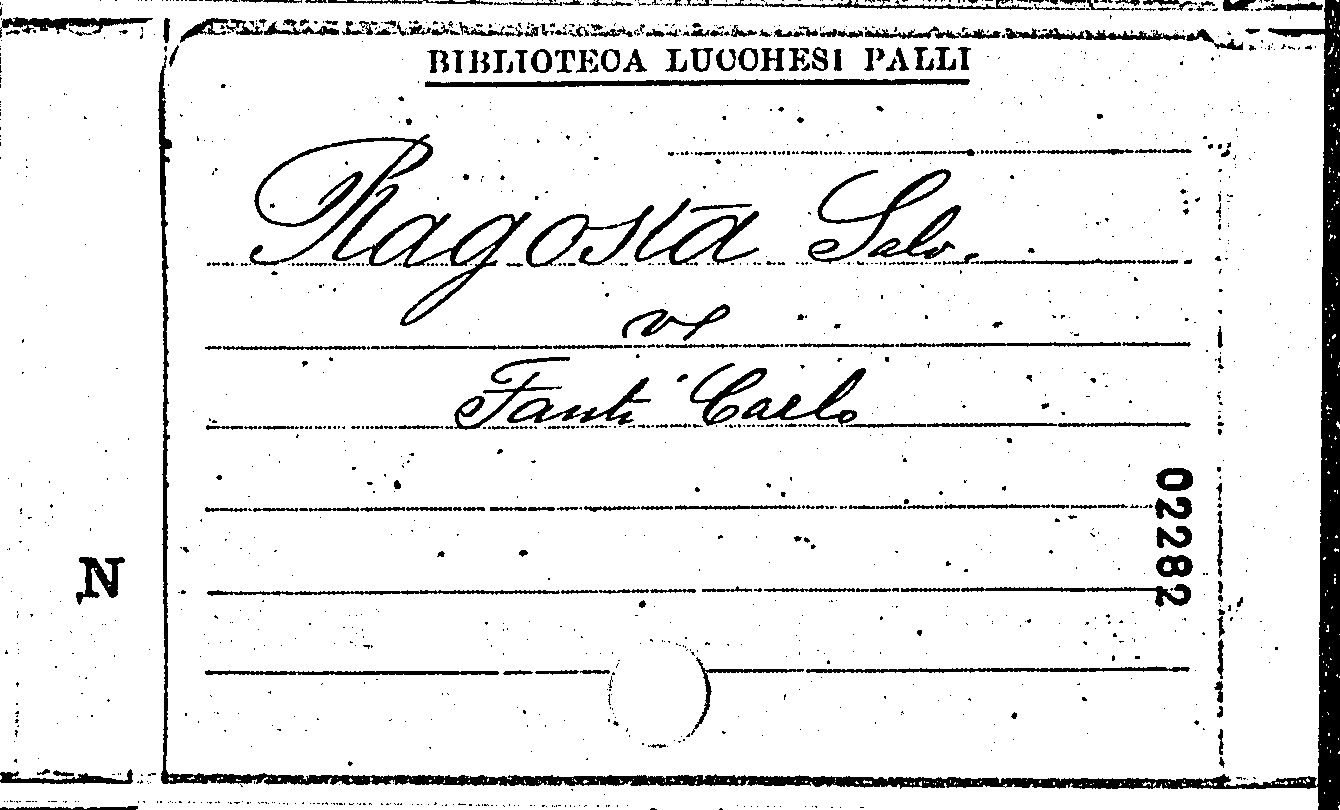 BIBLIOTECA LUCCHESI PALLI
Ragosta Salv.
ve
Fanti Carlo
02282
N